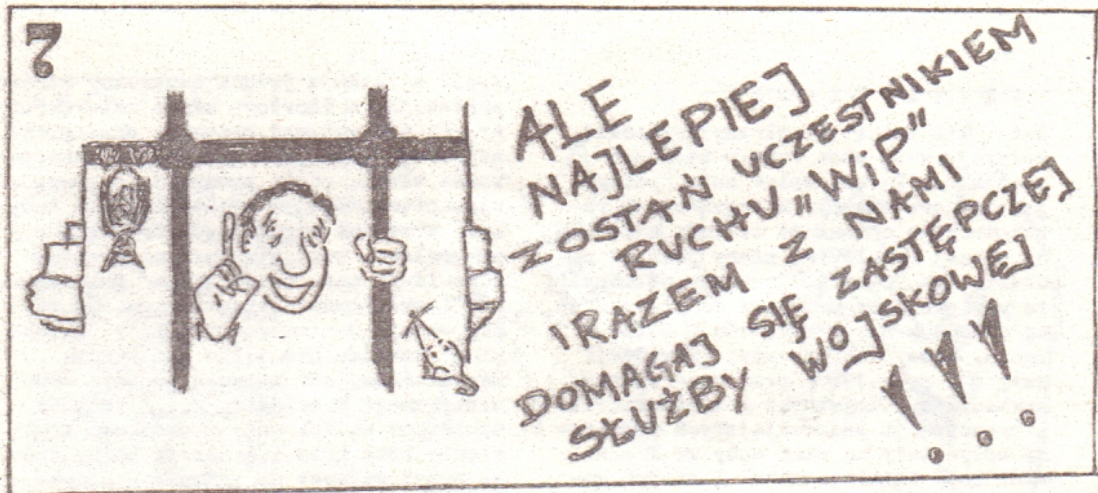 7
ALE
NAJLEPIEJ
ZOSTAŃ UCZESTNIKIEM
RUCHU „WiP"
I RAZEM Z NAMI
DOMAGAJ SIĘ ZASTĘPCZEJ
SŁUŻBY WOJSKOWEJ
!!!